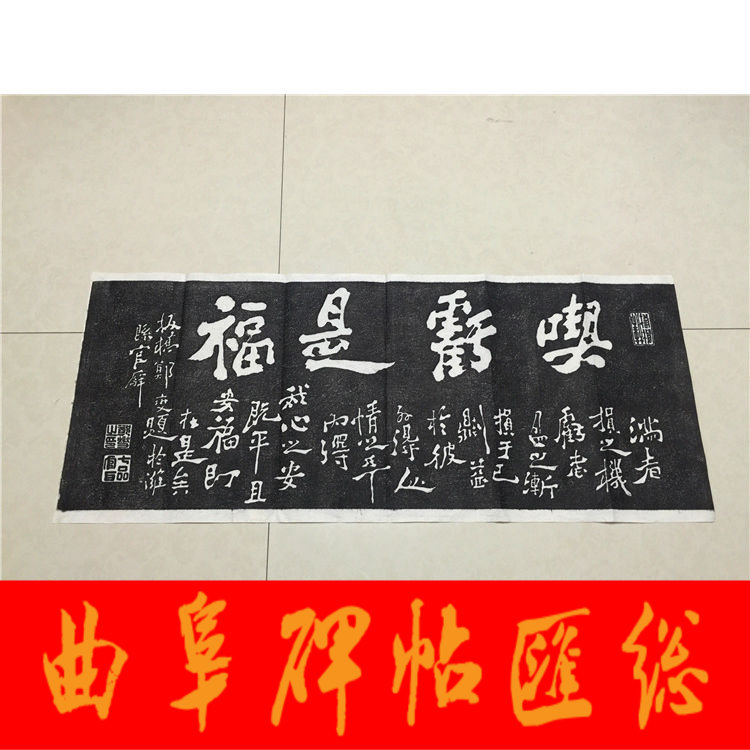 喫虧是福
滿者
損之機
虧者
盈之漸
損于己
則益
於彼
外得人
情之平
內得
我心之安
既平且
安福即
在是矣
板橋鄭燮題於濰
縣官廨
七品官耳
曲阜碑帖匯総